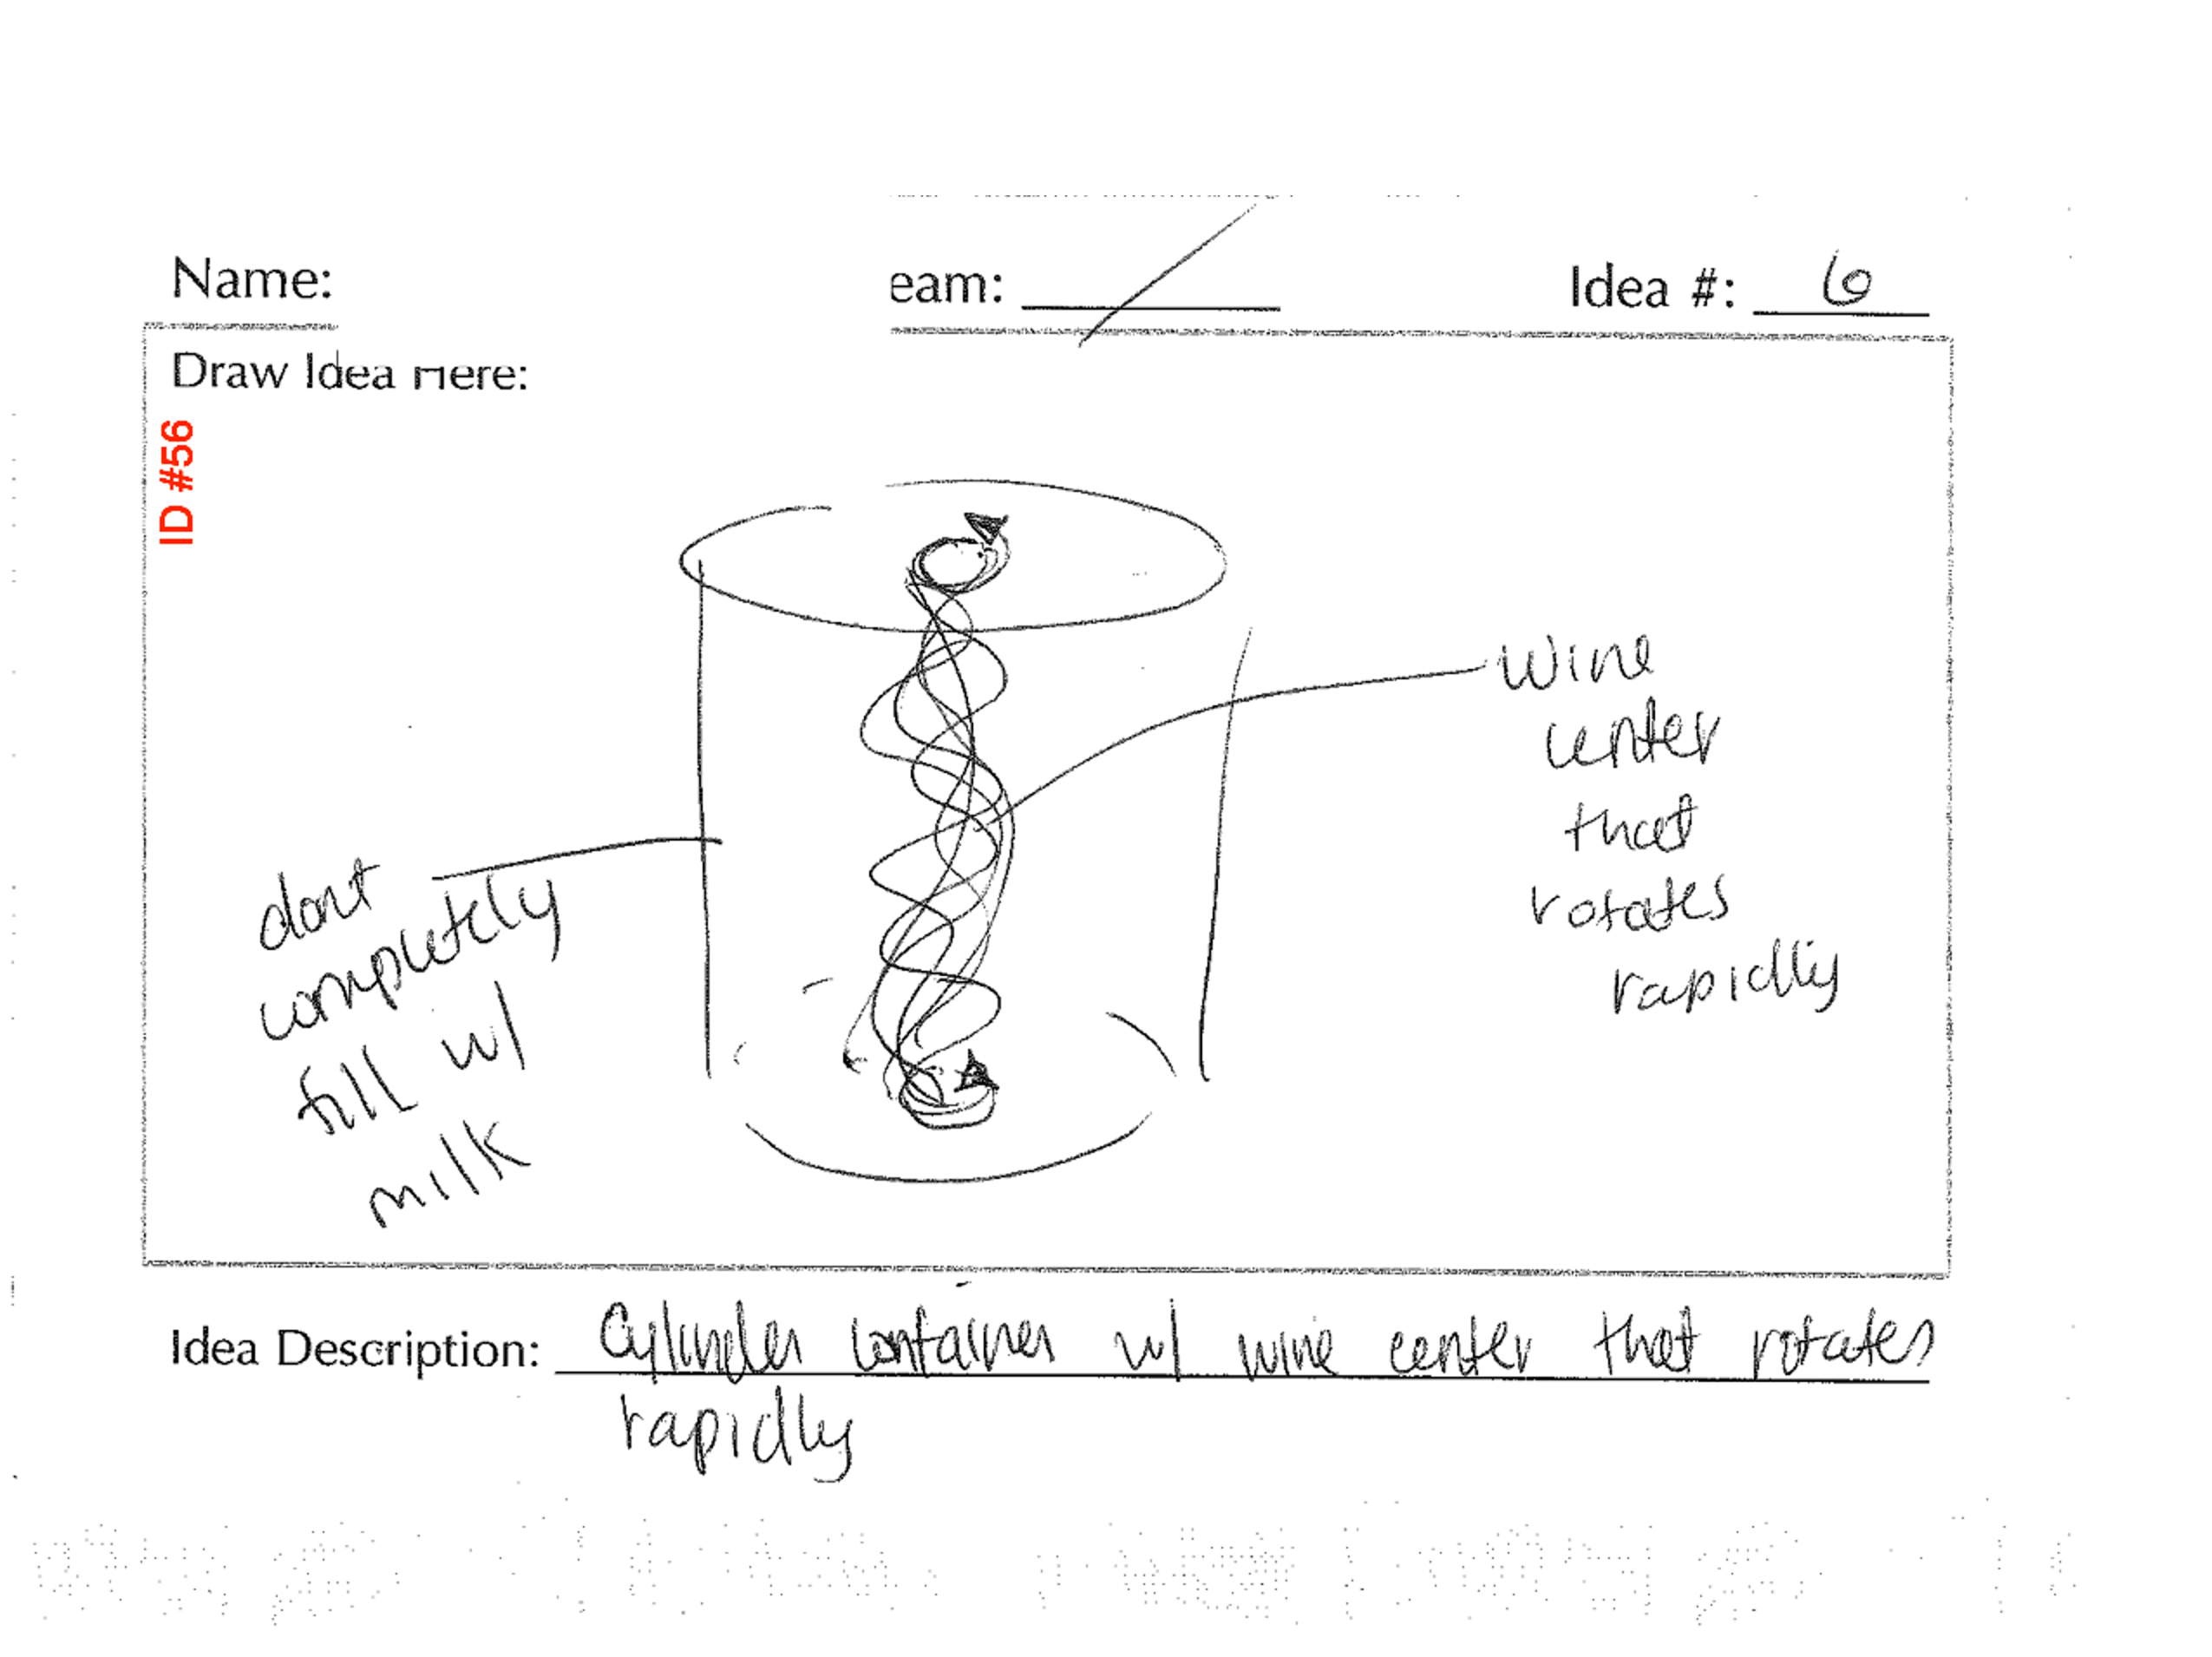 Name:
eam:
Idea #: 6
Draw Idea Here:
ID #56
Wine
center
that
rotates
rapidly
dont
completely
fill w/
milk
Idea Description: Cylinder container w/ wire center that rotates
rapidly